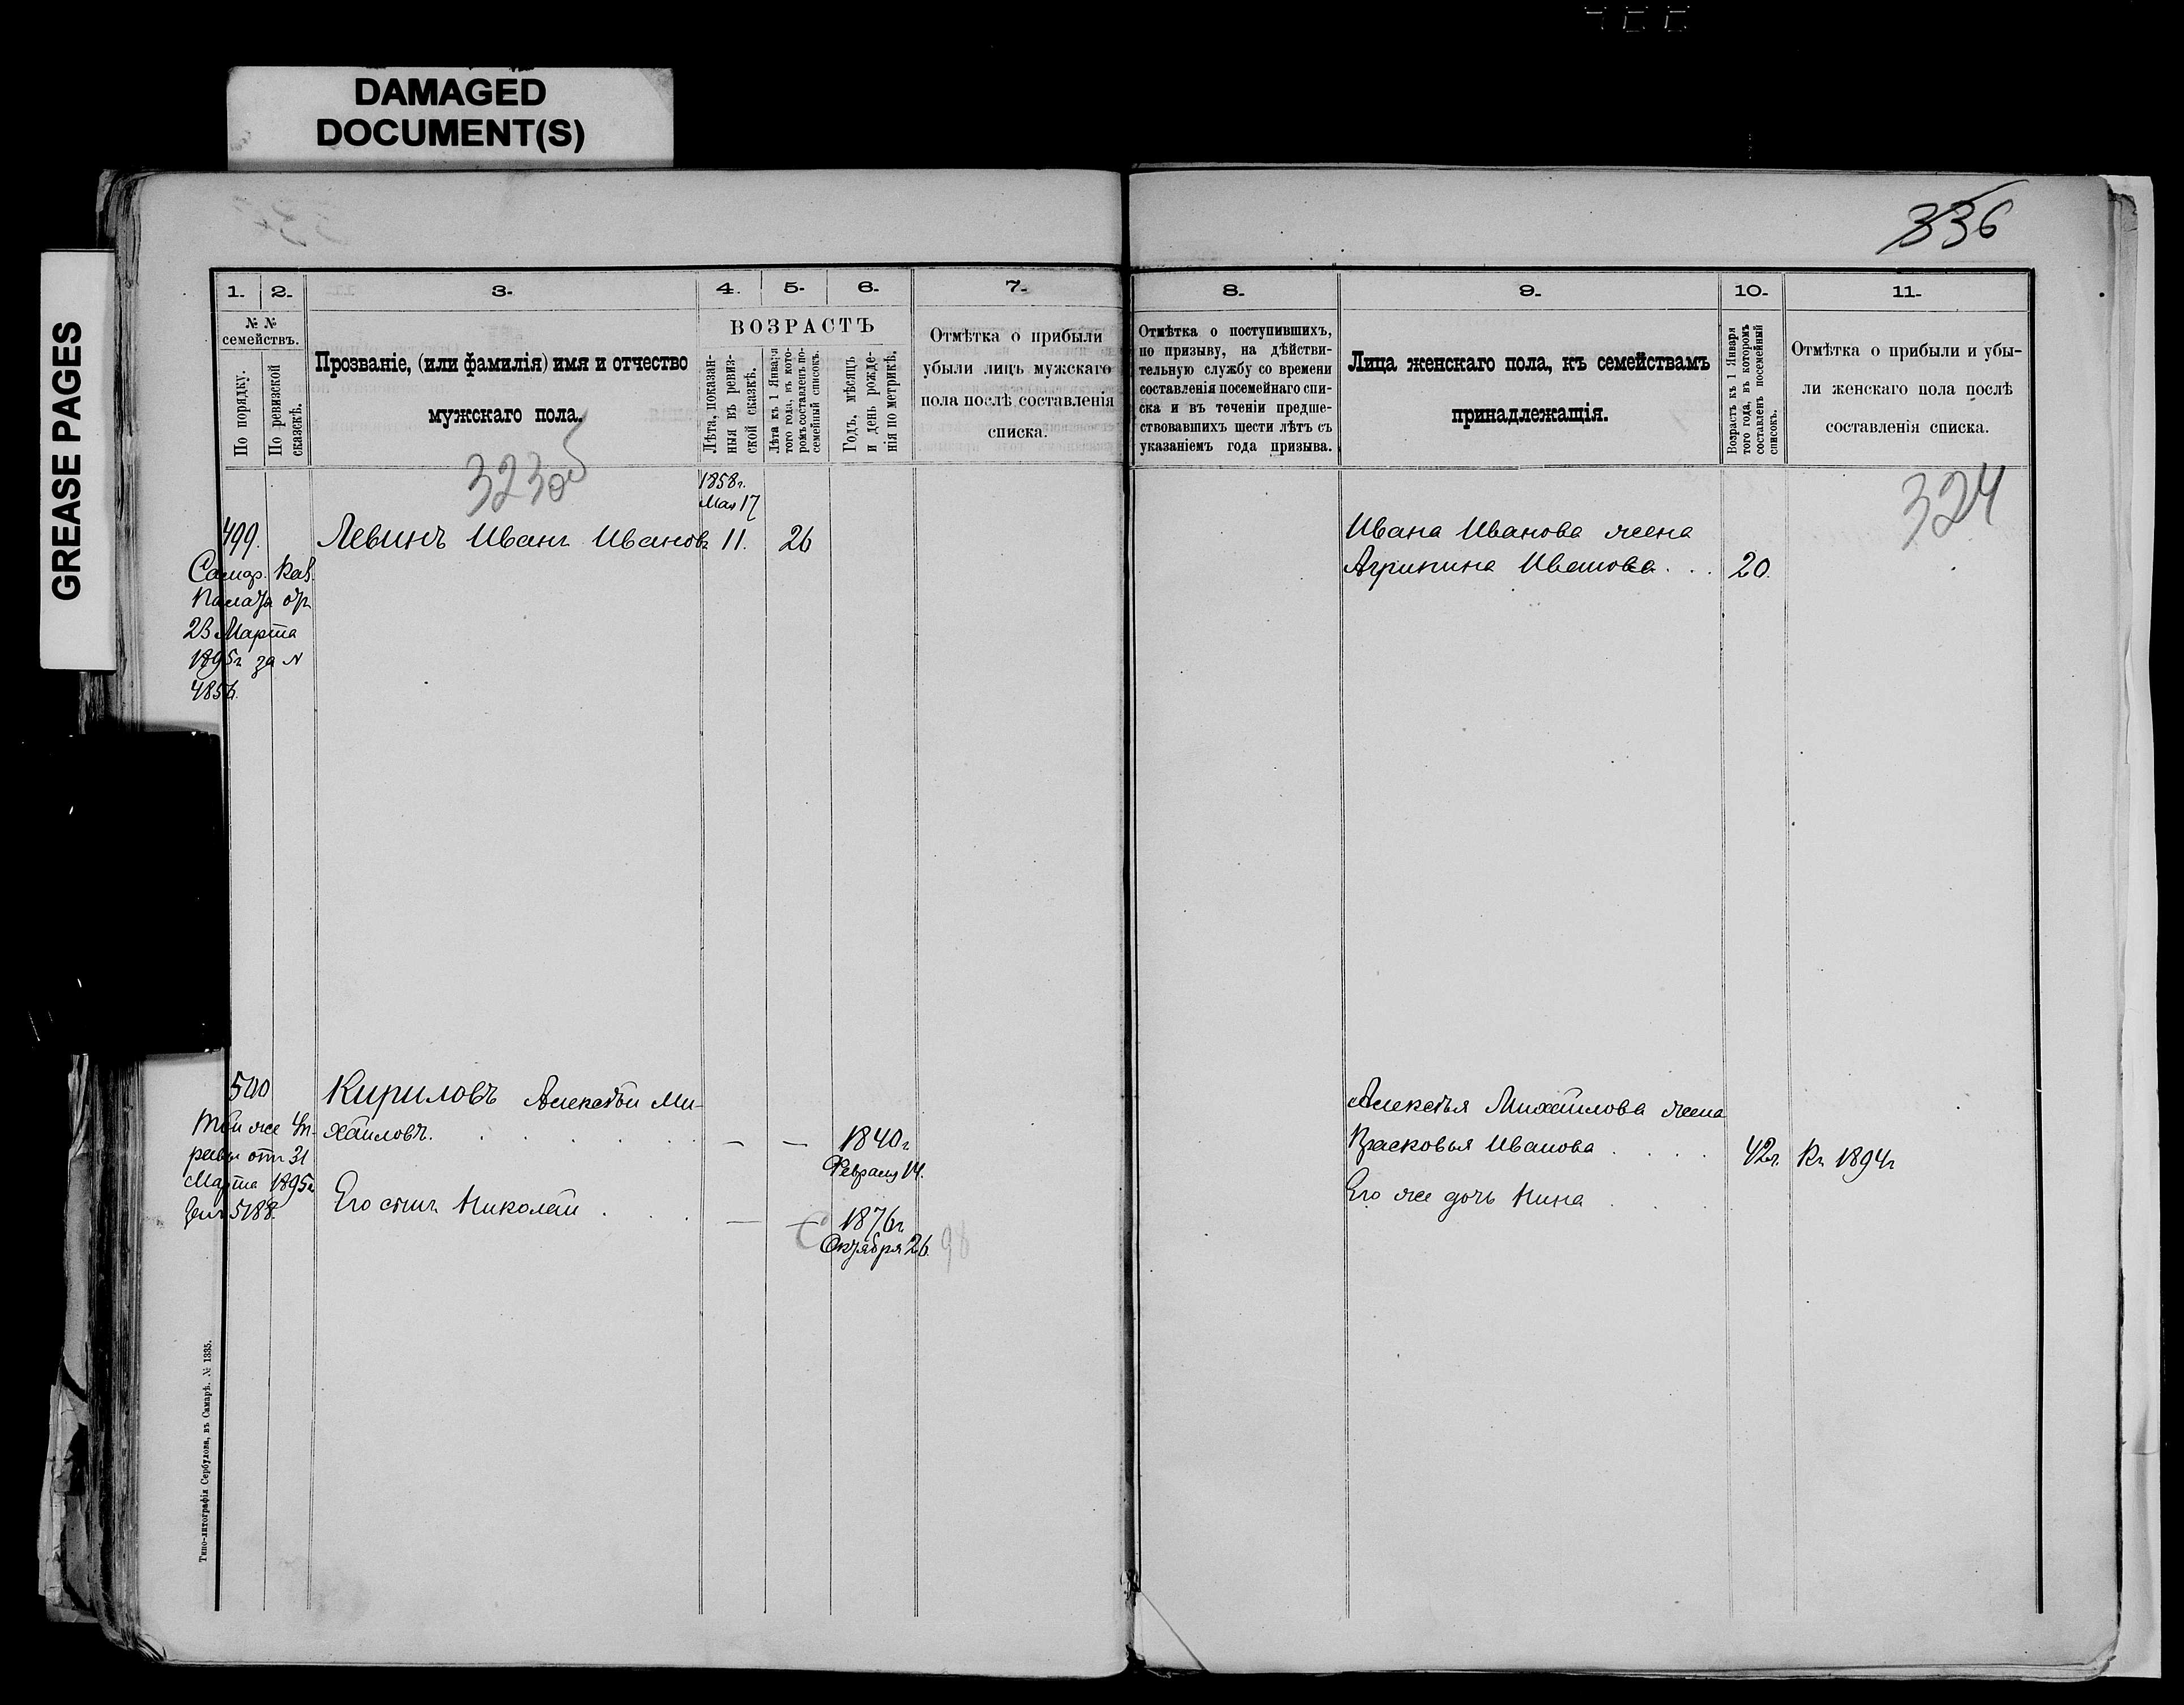 DAMAGED
DOCUMENT(S)
GREASE PAGES
336
1.
2.
3.
4.
5.
6.
7.
8.
9.
10.
11.
№ №
семействъ.
По порядку.
По ревизской
сказкѣ.
Прозваніе, (или фамилія) имя и отчество
мужскаго пола.
ВОЗРАСТЪ
Лѣта, показан-
ныя въ ревиз-
ской сказкѣ.
Лѣта къ 1 Января
того года, въ кото-
ромъ составленъ по-
семейный списокъ.
Годъ, мѣсяцъ
и день рожде-
нія по метрикѣ.
Отмѣтка о прибыли
убыли лицъ мужскаго
пола послѣ составленія
списка.
Отмѣтка о поступившихъ,
по призыву, на дѣйстви-
тельную службу со времени
составленія посемейнаго спи-
ска и въ теченіи предше-
ствовавшихъ шести лѣтъ съ
указаніемъ года призыва.
Лица женскаго пола, къ семействамъ
принадлежащія.
Возрастъ къ 1 Января
того года, въ которомъ
составленъ посемейный
списокъ.
Отмѣтка о прибыли и убы-
ли женскаго пола послѣ
составленія списка.
323об
324
1858г.
Мая 17
499.
Левинъ Иванъ Ивановъ 11. 26
Ивана Иванова жена
Агрипина Иванова . . . 20.
Самар. Каз.
Палаты отъ
23 Марта
1895г за №
4856.
500
Кириловъ Алексѣй Ми-
хайловъ. — — 1840г
Февраля 14.
Алексѣя Михайлова жена
Прасковья Иванова . . . . 42л. Къ 1894г
Той же
отъ 31
Марта 1895г
5188.
Его сынъ Николай . . . — — 1876г
Октября 26. 98
Его же дочь Нина . . .
Типо-литографія Сербулова, въ Самарѣ. № 1335.